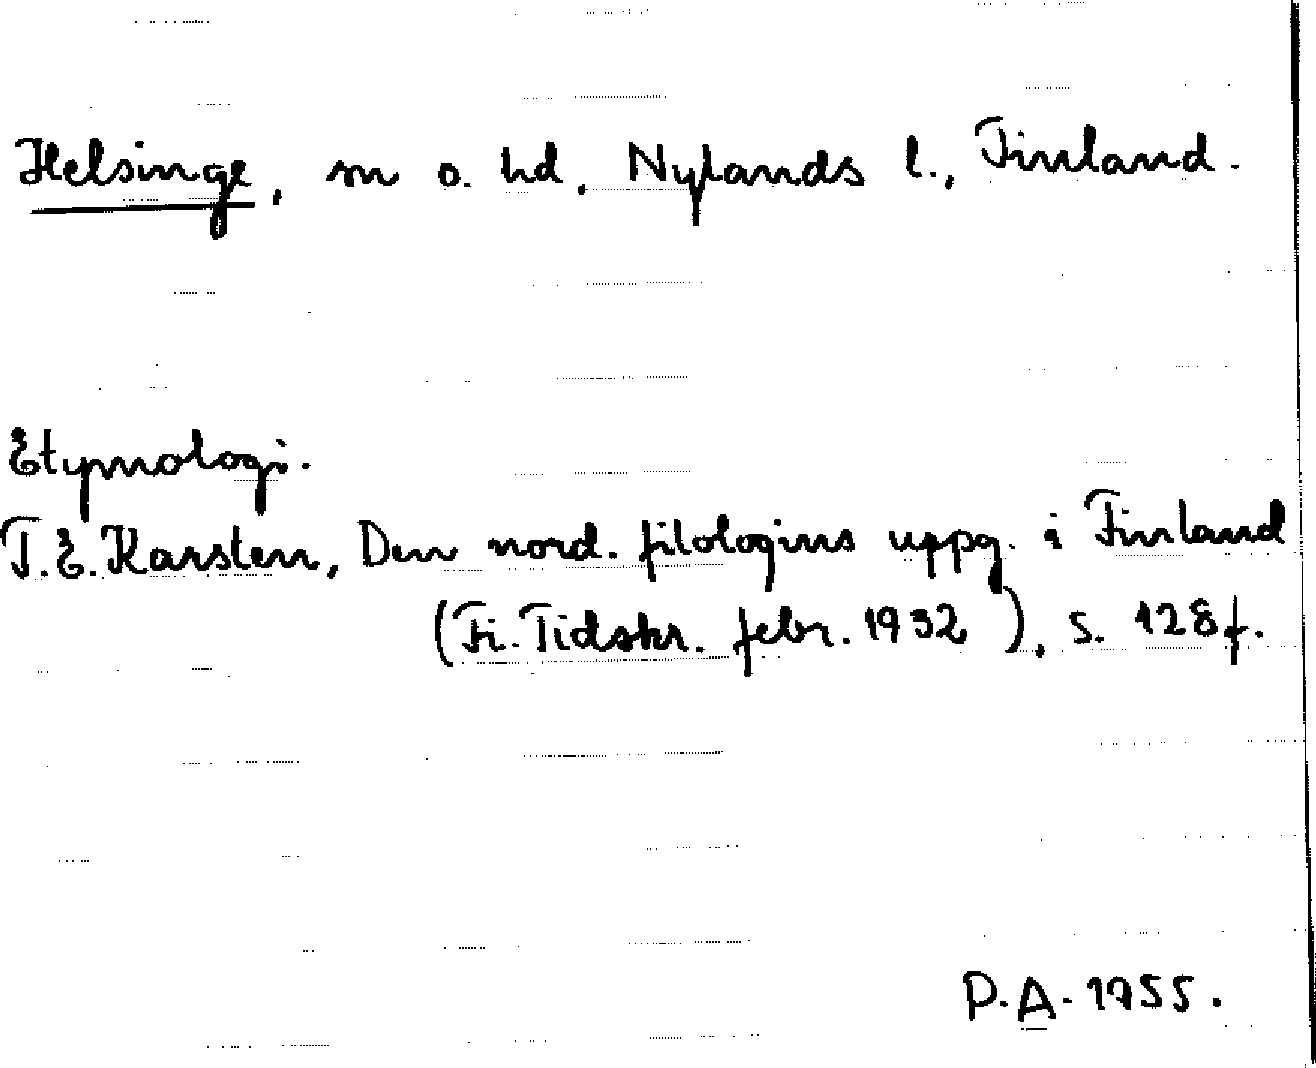 Helsinge, sn o. hd, Nylands l., Finland.
Etymologi.
T.E. Karsten, Den nord. filologins uppg. i Finland
(Fi. Tidskr. febr. 1932), s. 128 f.
P.A. 1955.